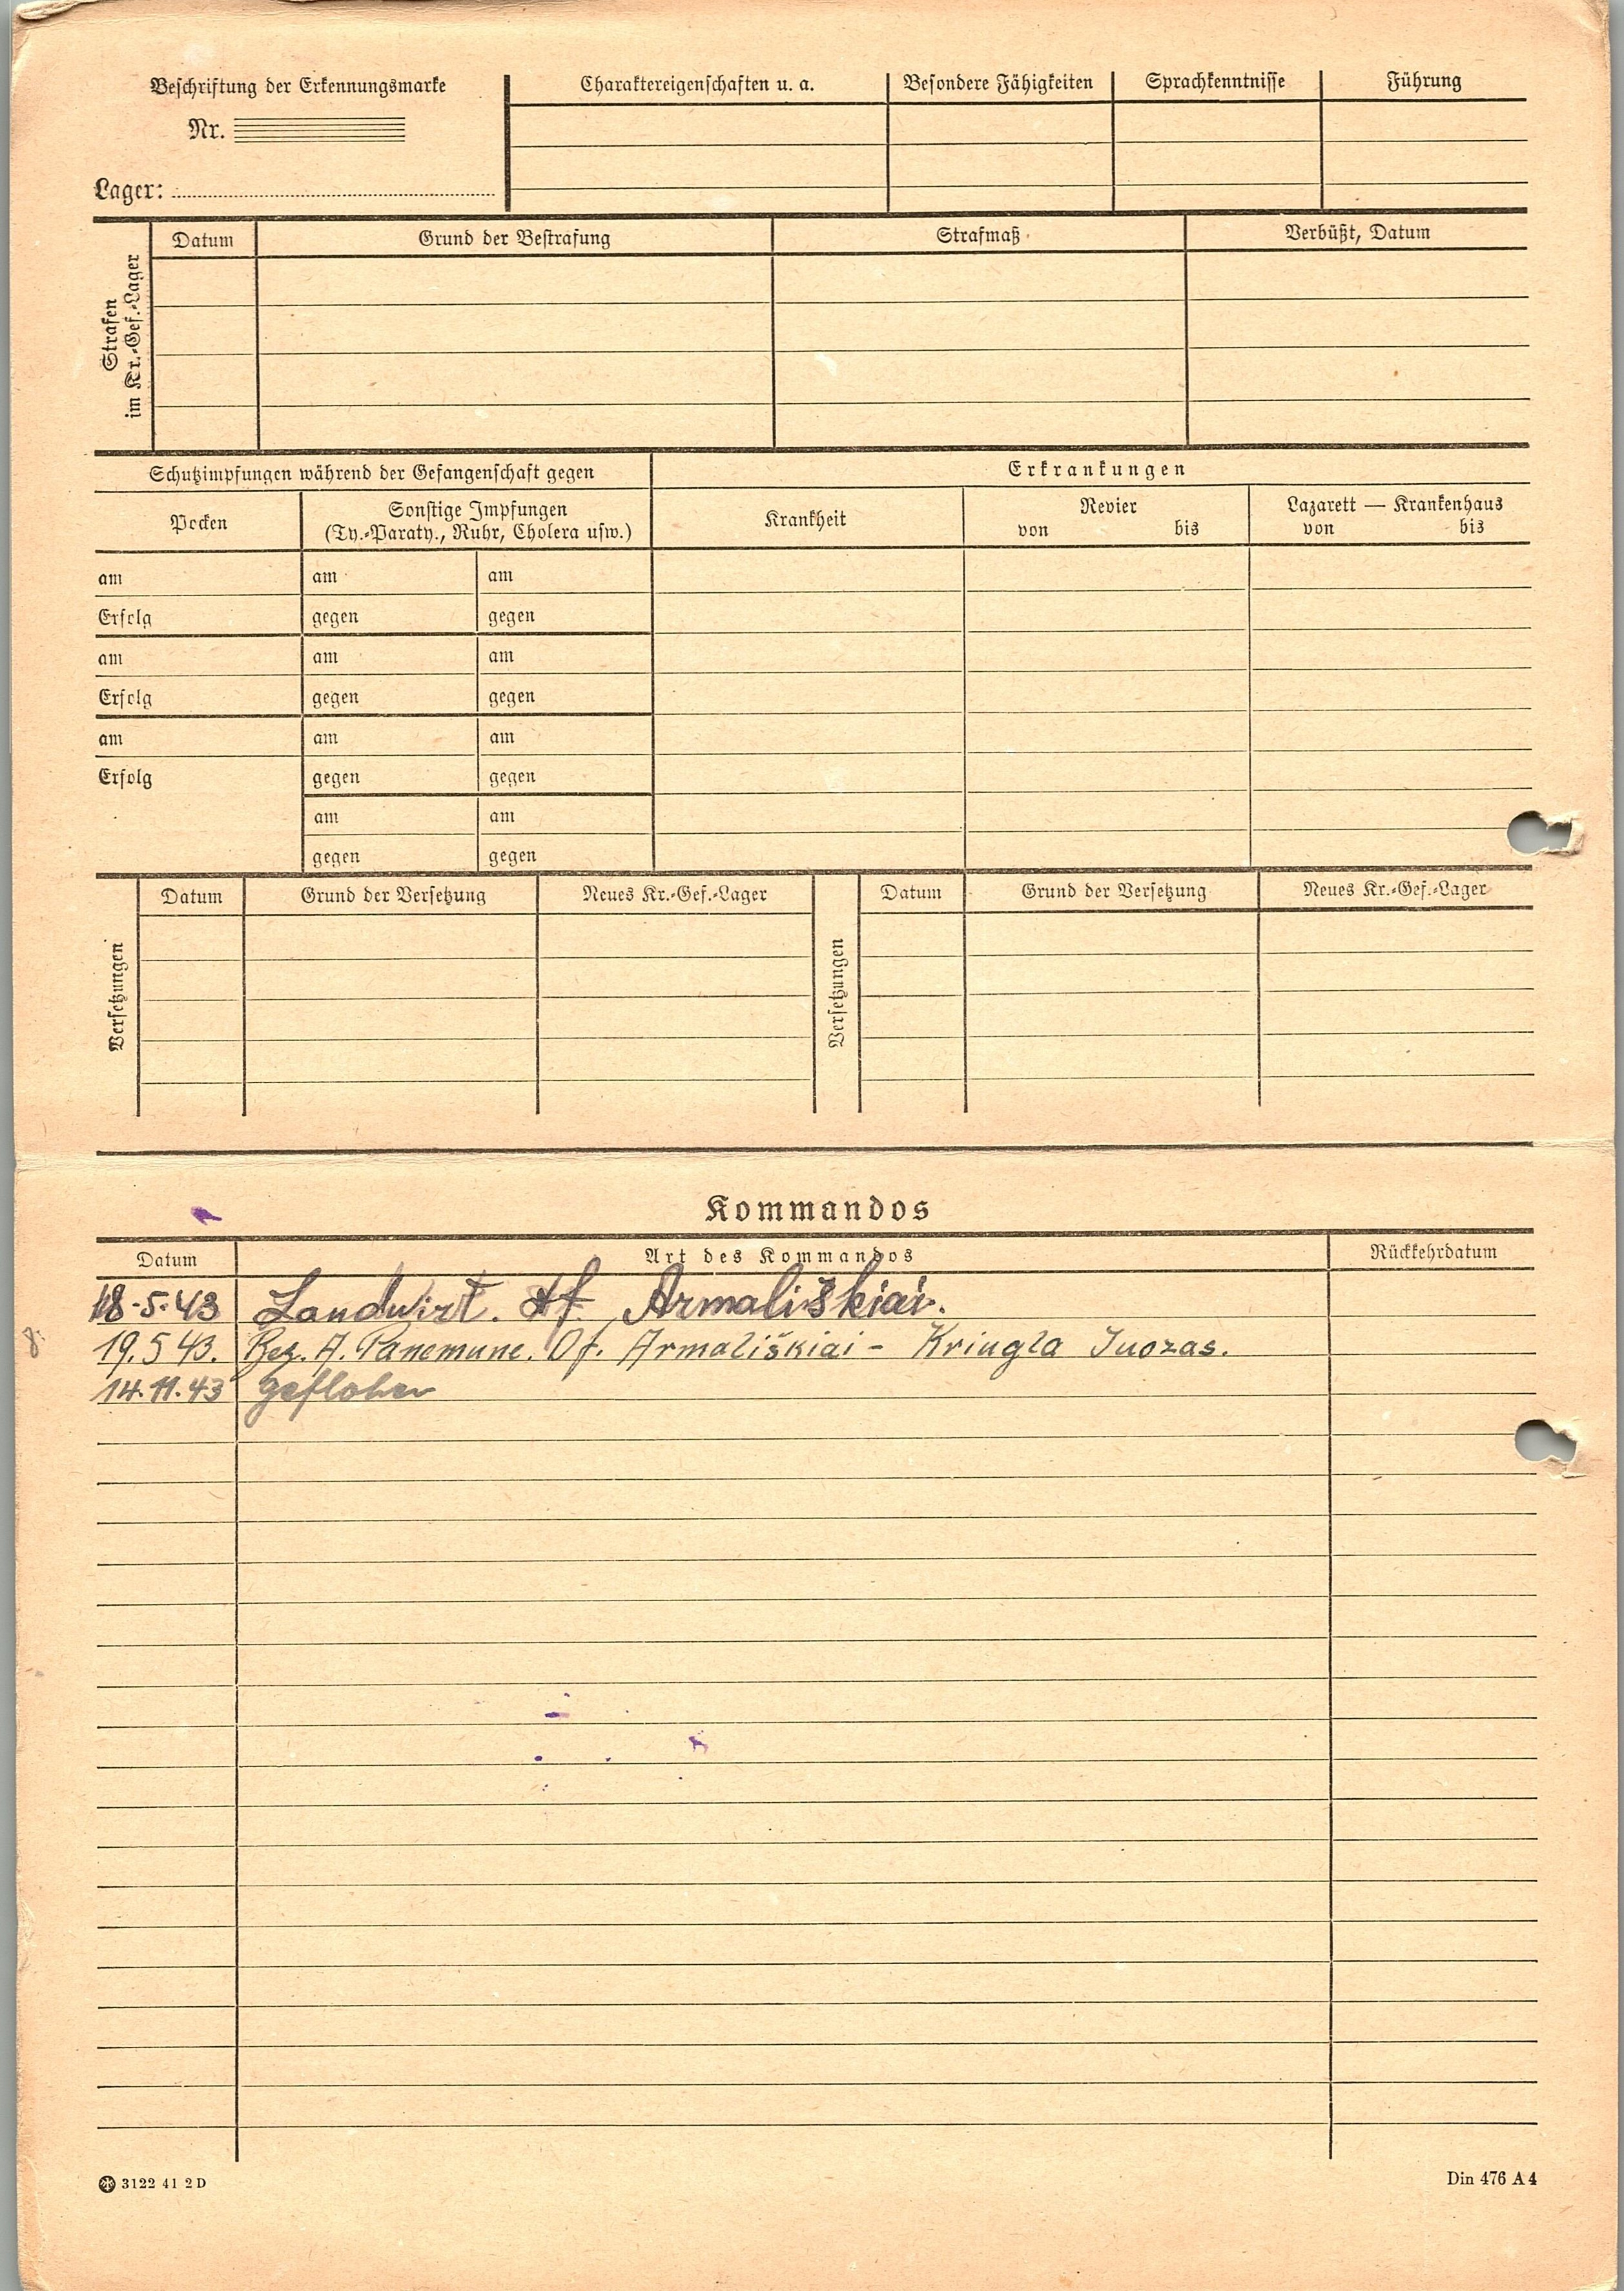 Beschriftung der Erkennungsmarke
Nr.
Lager:
Charaktereigenschaften u. a. Besondere Fähigkeiten Sprachkenntnisse Führung
Strafen
im Kr.-Gef.-Lager
Datum Grund der Bestrafung Strafmaß Verbüßt, Datum
Schutzimpfungen während der Gefangenschaft gegen Erkrankungen
Pocken
Sonstige Impfungen
(Ty.-Paraty., Ruhr, Cholera usw.)
Krankheit
Revier
von bis
Lazarett — Krankenhaus
von bis
am am am
Erfolg gegen gegen
am am am
Erfolg gegen gegen
am am am
Erfolg gegen gegen
am am
gegen gegen
Versetzungen
Datum Grund der Versetzung Neues Kr.-Gef.-Lager
Versetzungen
Datum Grund der Versetzung Neues Kr.-Gef.-Lager
Kommandos
Datum Art des Kommandos Rückkehrdatum
18.5.43 Landwirt. Armališkiai.
19.5 43. Bez. A. Panemune. Df. Armališkiai - Kringla Juozas.
14.11.43 geflohen
3122 41 2 D
Din 476 A 4